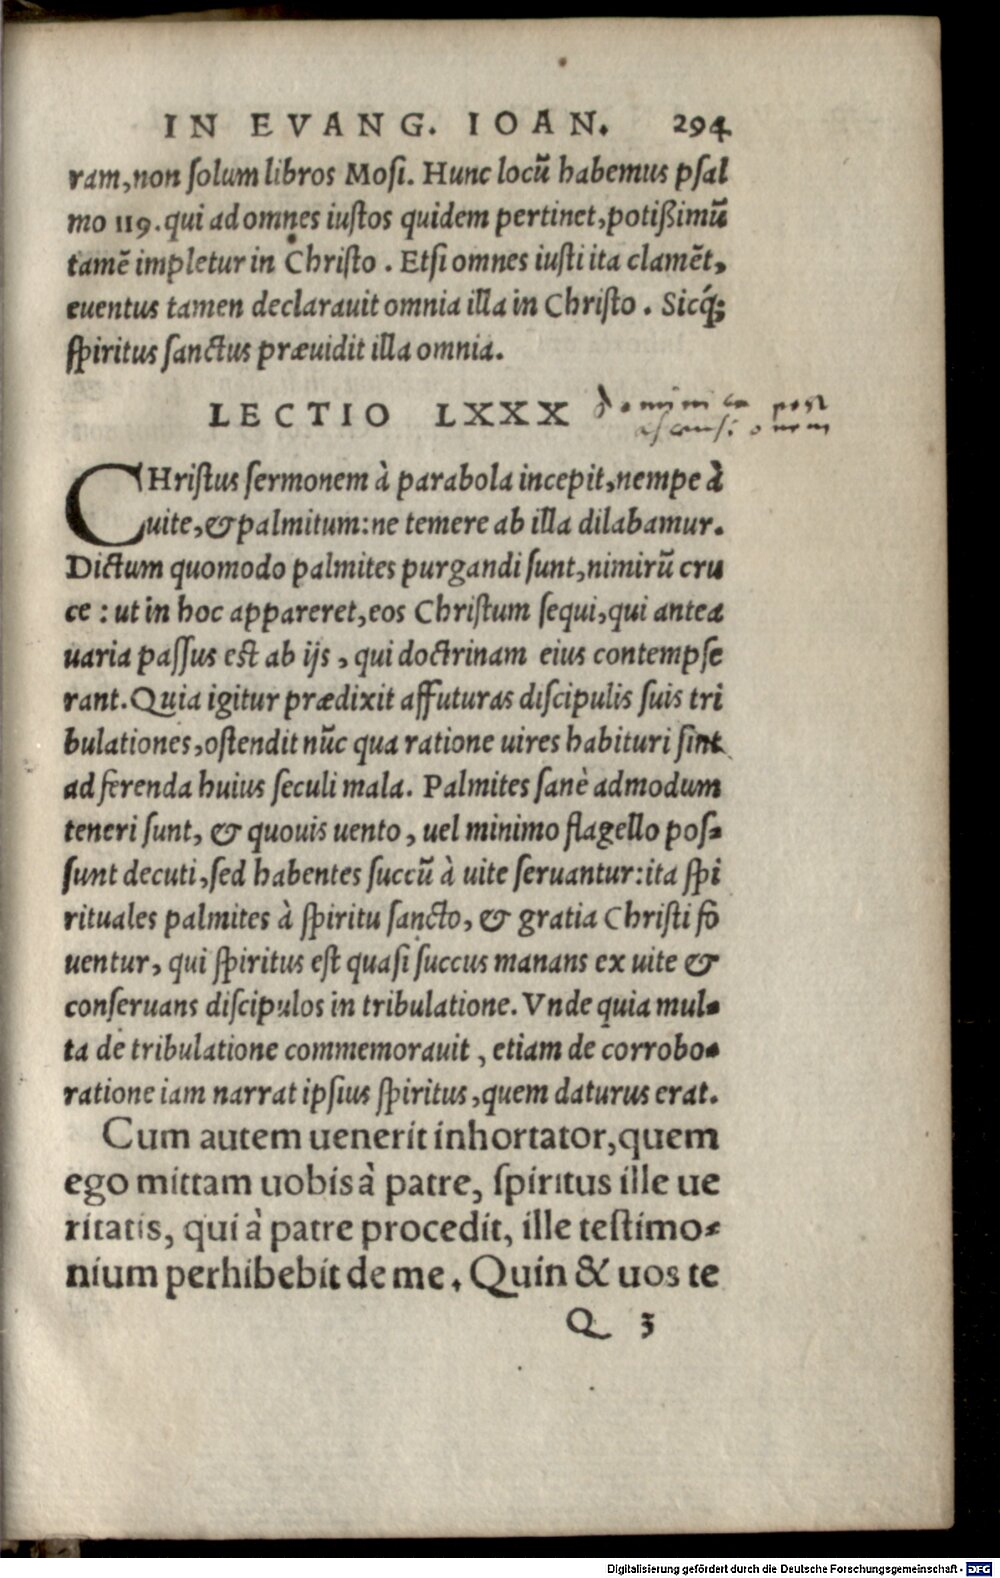 IN EVANG. IOAN. 294
ram, non ſolum libros Moſi. Hunc locũ habemus pſal
mo 119. qui ad omnes iuſtos quidem pertinet, potißimũ
tamẽ impletur in Chriſto. Etſi omnes iuſti ita clamẽt,
euentus tamen declarauit omnia illa in Chriſto. Sicq́;
ſpiritus ſanctus præuidit illa omnia.
LECTIO LXXX
dominica post
ascensionem
CHriſtus ſermonem à parabola incepit, nempe à
uite, & palmitum: ne temere ab illa dilabamur.
Dictum quomodo palmites purgandi ſunt, nimirũ cru
ce: ut in hoc appareret, eos Chriſtum ſequi, qui antea
uaria paſſus est ab ijs, qui doctrinam eius contempſe
rant. Quia igitur prædixit affuturas diſcipulis ſuis tri
bulationes, oſtendit nũc qua ratione uires habituri ſint
ad ferenda huius ſeculi mala. Palmites ſanè admodum
teneri ſunt, & quouis uento, uel minimo flagello poſ-
ſunt decuti, ſed habentes ſuccũ à uite ſeruantur: ita ſpi
rituales palmites à ſpiritu ſancto, & gratia Chriſti fo
uentur, qui ſpiritus eſt quaſi ſuccus manans ex uite &
conſeruans diſcipulos in tribulatione. Vnde quia mul-
ta de tribulatione commemorauit, etiam de corrobo-
ratione iam narrat ipſius ſpiritus, quem daturus erat.
Cum autem uenerit inhortator, quem
ego mittam uobis à patre, ſpiritus ille ue
ritatis, qui à patre procedit, ille teſtimo-
nium perhibebit de me. Quin & uos te
Q 3
Digitalisierung gefördert durch die Deutsche Forschungsgemeinschaft - DFG